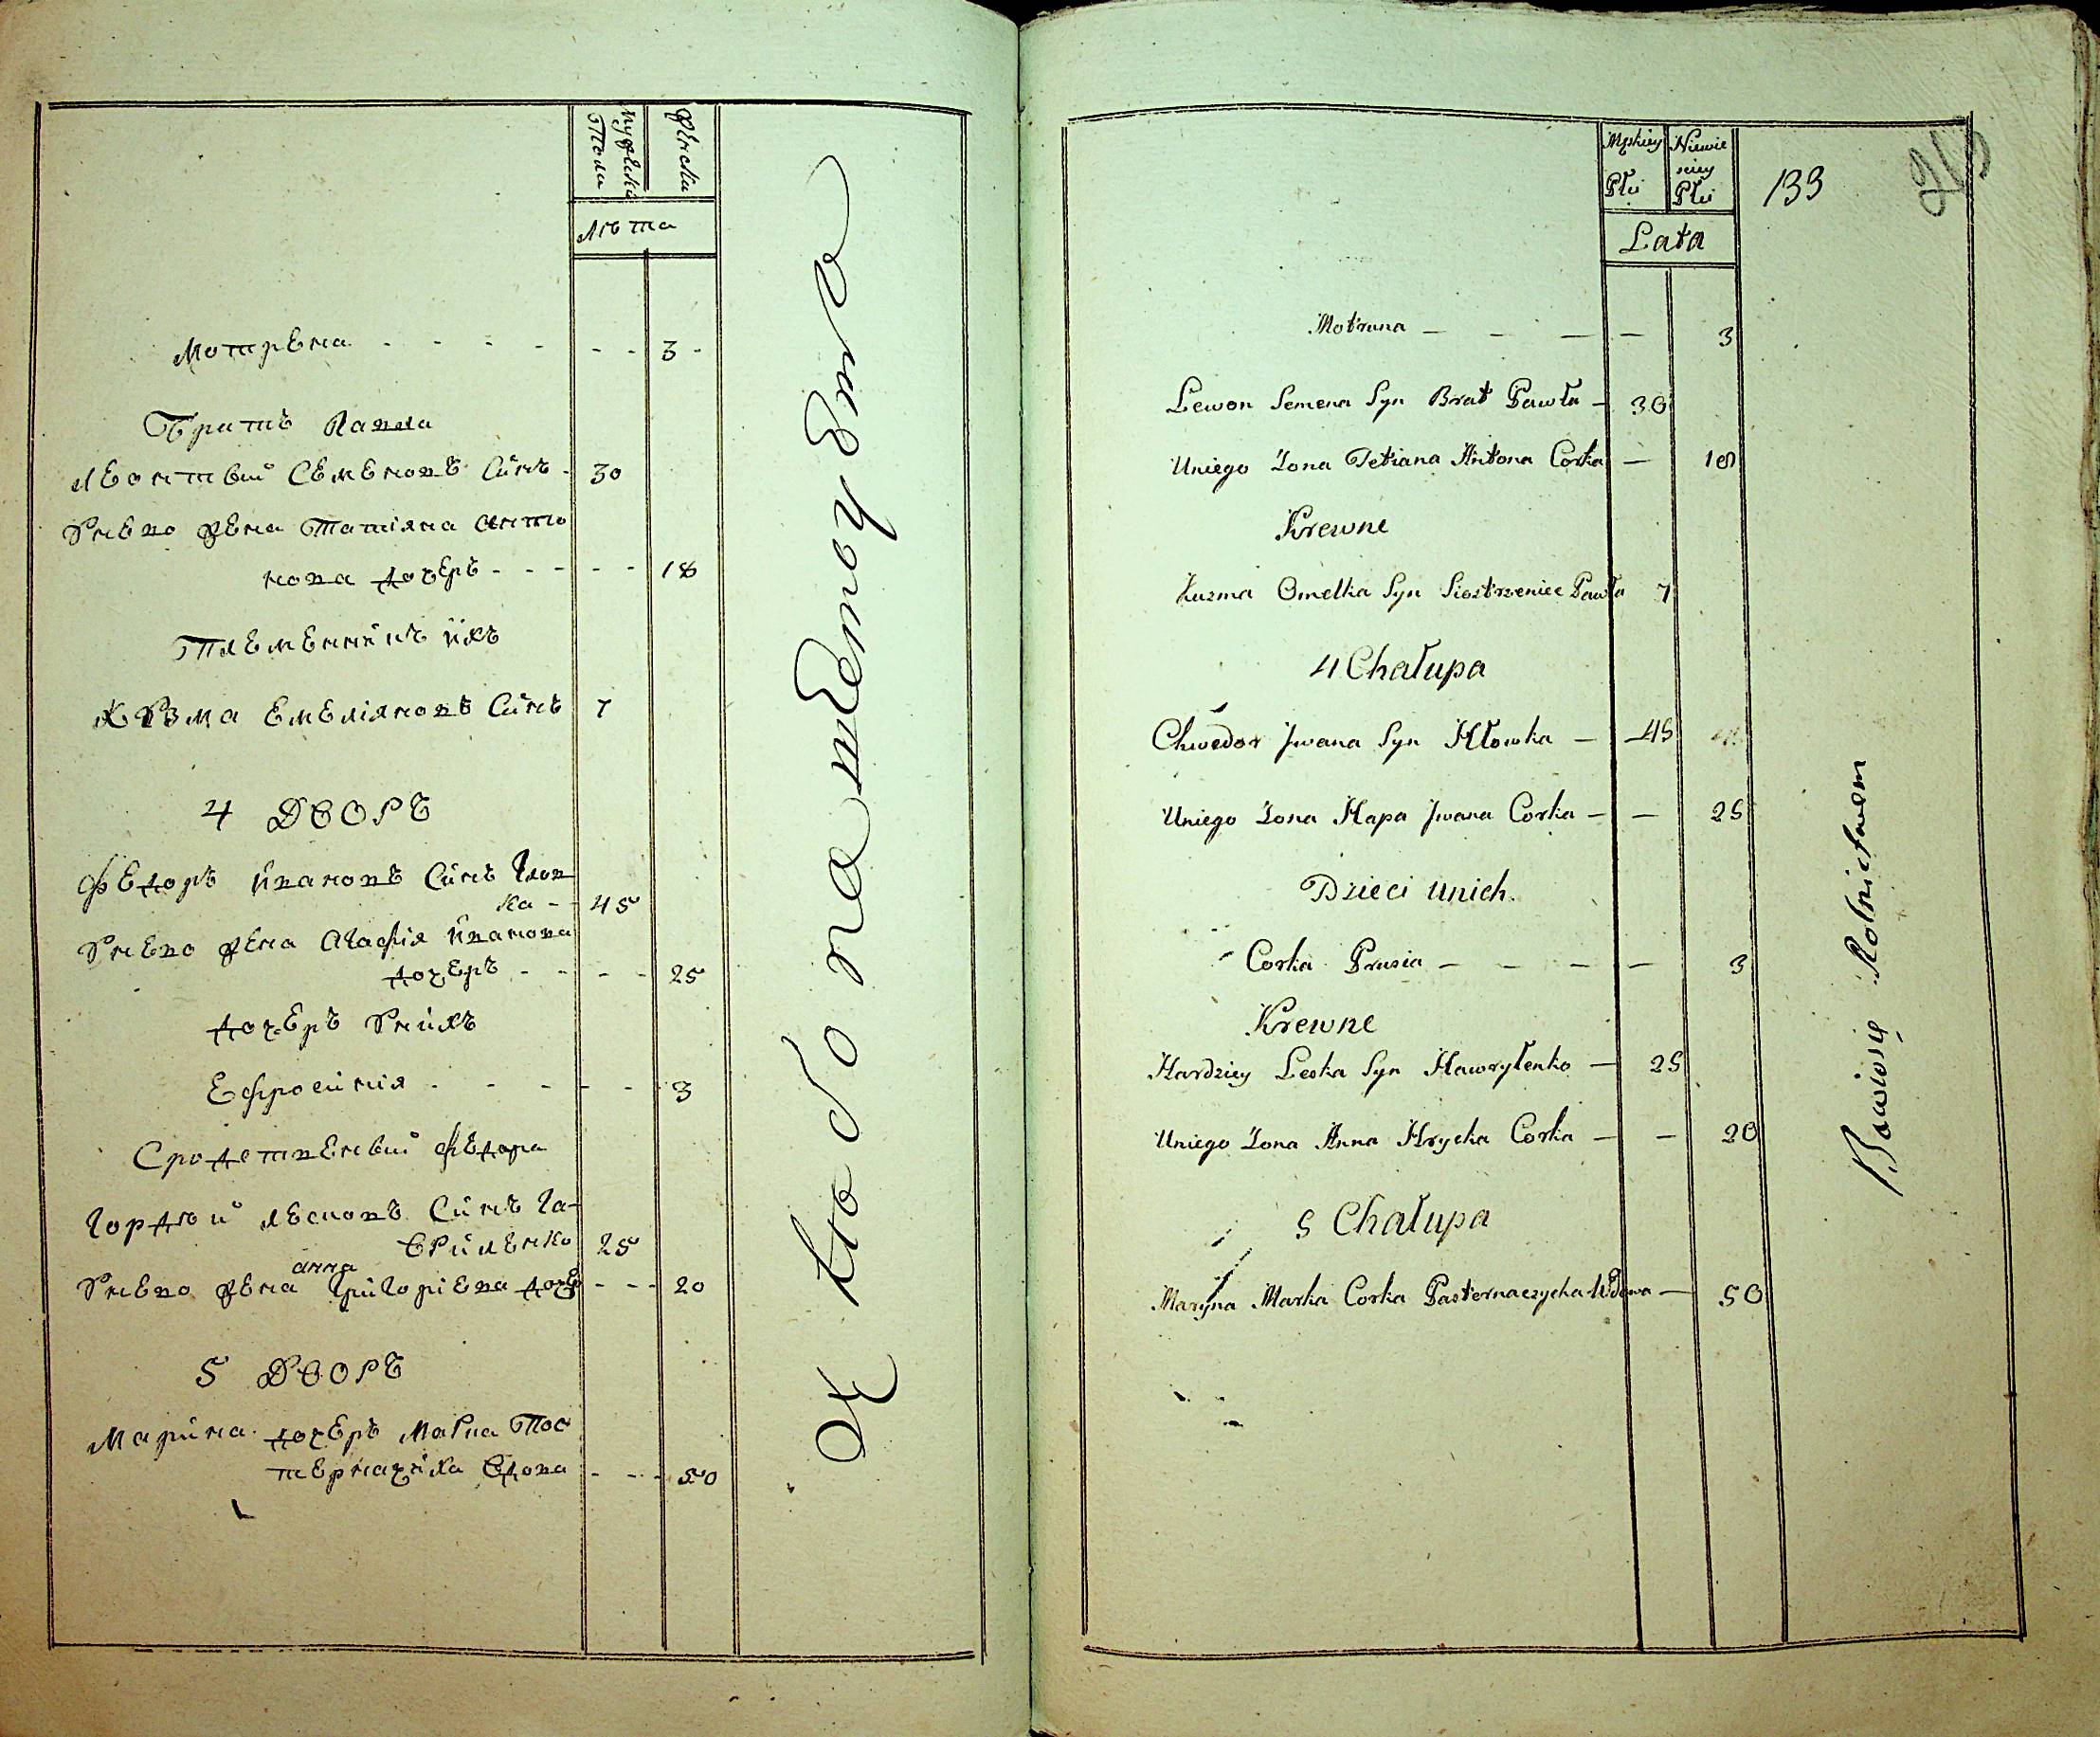 мужеска
Пола
женска
Лѣта
Мотрена - - - - - - 3 -
Братъ Павла
Леонтвий Семеновъ Синъ - 30
Унево жена Татіяна Анто
нова дочеръ - - - - - 18
Племенникъ ихъ
Кузма Емеліяновъ Синъ 7
4 ДВОРЪ
Федоръ Ивановъ Синъ Глов
ка - - 45
Унево жена Агафія Иванова
дочеръ - - - - 25
дочеръ Унихъ
Ефросинія - - - - - 3
Сродственвий Федора
Гордѣй Лесковъ Синъ Га-
вриленко 25
анна
Унево жена Григоріева дочеръ - - - 20
5 ДВОРЪ
Марина дочеръ Марка Пос
терначиха Вдова - - - 50
Męskiey Płci
Niewie sciey Płci
133
Lata
Motruna — — — — 3
Lewon Semena Syn Brat Pawła — 30
Uniego Zona Tetiana Antona Corka — 18
Krewne
Kuzma Omelka Syn Siostrzeniec Pawła 7
4 Chałupa
Chwedor Jwana Syn Hłowka — 45
Uniego Zona Hapa Jwana Corka — — 25
Dzieci Unich.
Corka Prusia — — — — 3
Krewne
Hardziey Leska Syn Hawryłenko — 25
Uniego Zona Anna Hrycka Corka — — 20
5 Chałupa
Maryna Marka Corka Pasternaczycha Wdowa — 50
Bawiąsię Rolnictwem